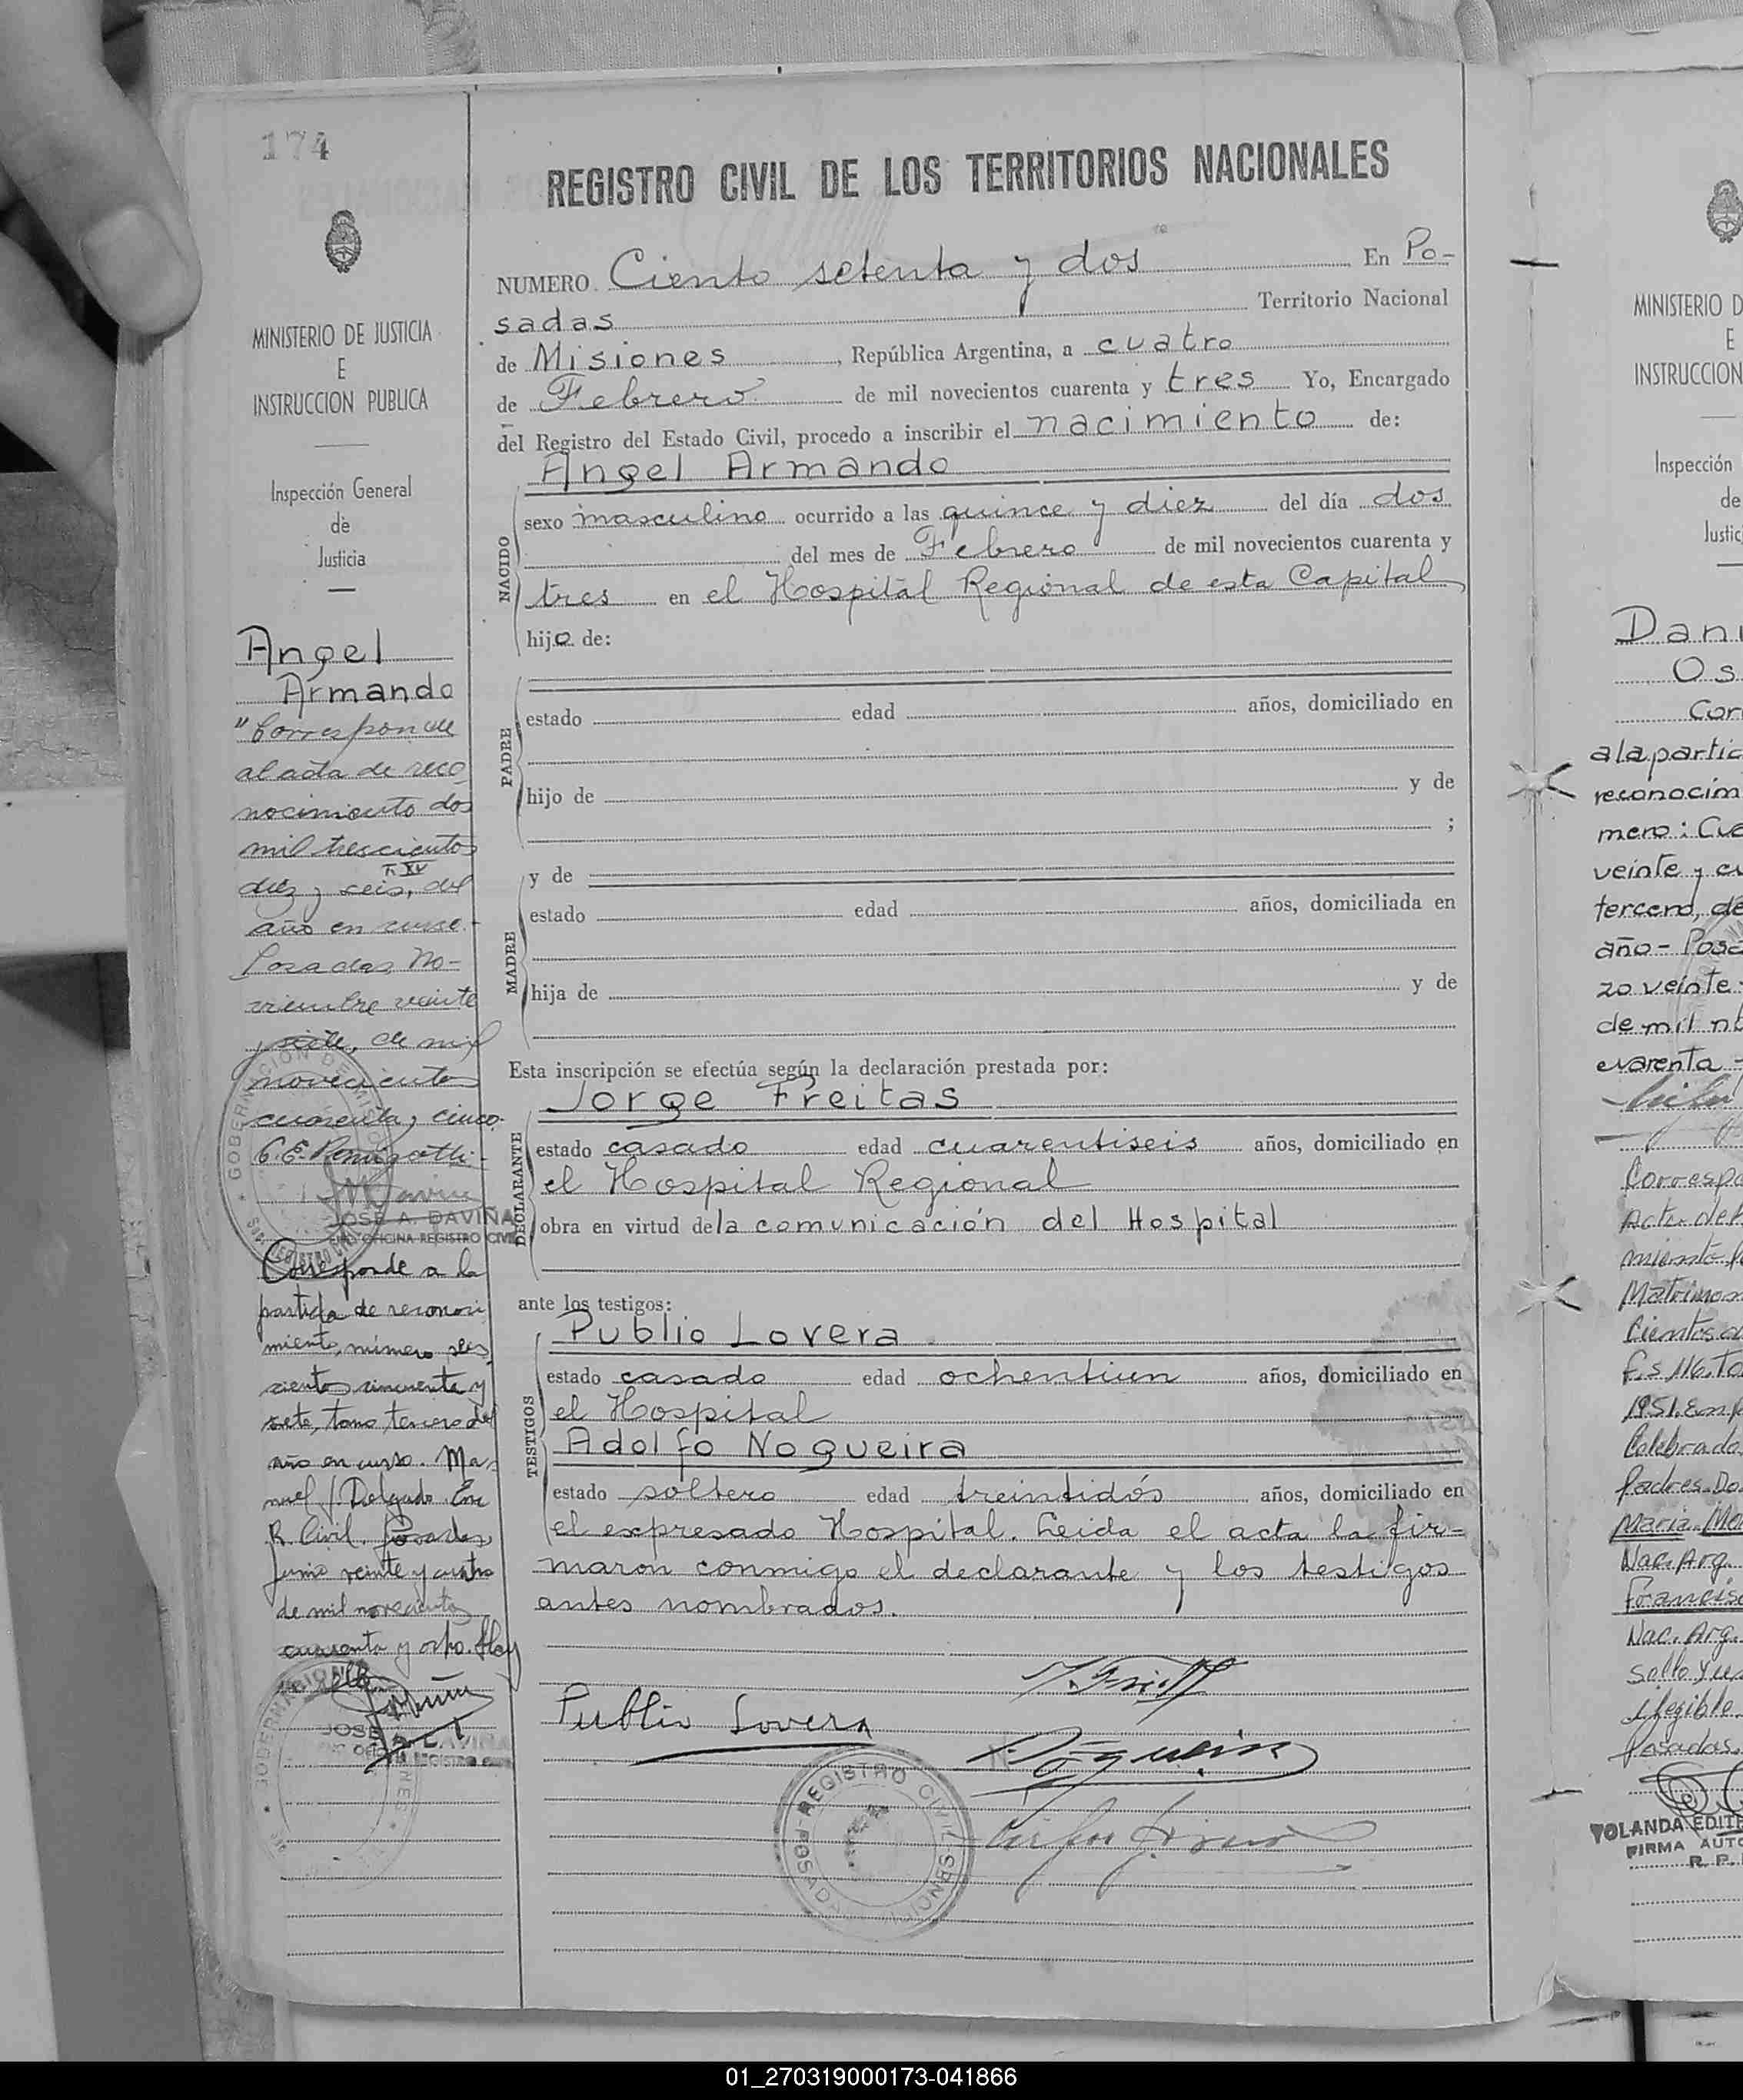 174
MINISTERIO DE JUSTICIA
E
INSTRUCCION PUBLICA
Inspección General
de
Justicia
Angel
Armando
"Corresponde
al acta de reco
nocimiento dos
mil trescientos
T. XV
diez y seis, del
año en curso.-
Posadas, No-
viembre veinte
y siete, de mil
novecientos
cuarenta y cinco
C. E.
JOSE A. DAVIÑA
OFICINA REGISTRO CIVIL
Corresponde a la
partida de reconoci
miento, número seis
cientos cincuenta y
siete, tomo tercero del
año en curso. Ma-
nuel J. Delgado. Enc
R. Civil. Posadas,
junio veinte y cuatro
de mil novecientos
cuarenta y ocho. Hay
un sello
JOSE A. DAVIÑA
REGISTRO CIVIL DE LOS TERRITORIOS NACIONALES
NUMERO Ciento setenta y dos En Po-
sadas Territorio Nacional
de Misiones, República Argentina, a cuatro
de Febrero de mil novecientos cuarenta y tres Yo, Encargado
del Registro del Estado Civil, procedo a inscribir el nacimiento de:
Angel Armando
NACIDO
sexo masculino ocurrido a las quince y diez del día dos
del mes de Febrero de mil novecientos cuarenta y
tres en el Hospital Regional de esta Capital
hijo de:
PADRE
estado edad años, domiciliado en
hijo de y de
;
y de
MADRE
estado edad años, domiciliada en
hija de y de
Esta inscripción se efectúa según la declaración prestada por:
Jorge Freitas
DECLARANTE
estado casado edad cuarentiseis años, domiciliado en
el Hospital Regional
obra en virtud de la comunicación del Hospital
ante los testigos:
Publio Lovera
TESTIGOS
estado casado edad ochentiun años, domiciliado en
el Hospital
Adolfo Nogueira
estado soltero edad treintidós años, domiciliado en
el expresado Hospital. Leida el acta la fir-
maron conmigo el declarante y los testigos
antes nombrados.
Publio Lovera
Nogueira
REGISTRO CIVIL
MINISTERIO D
E
INSTRUCCION
Inspección
de
Justic
Dani
Os
Cor
a la partic
reconocim
mero: Cua
veinte y cu
tercero, de
año - Posa
zo veinte
de mil no
cuarenta
Corresp
Acta de
miento
Matrimon
Cientos
Fs 116. To
1951. En
Celebrado
padres. Do
Maria. Me
Nac. Arg.
Francisc
Nac. Arg.
Sello y u
ilegible.
Posadas.
YOLANDA EDITH
FIRMA AUTO
R. P.
01_270319000173-041866